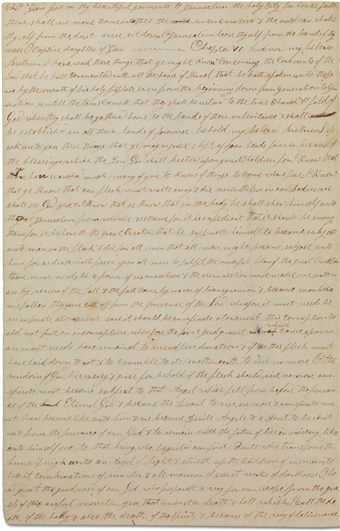 put on thy beautiful garments O Jerusalem the holy City for henceforth
there shall no more come into thee the uncircumcised & the unclean shake
thyself from the dust arise sit down O Jerusalem loose thyself from the bands of thy
neck O Captive daughter of Zion Chapter VI And now my beloved
Brethren I have read these things that ye might know concerning the Covenants of the
Lord that he hath covenanted with all the house of Israel that he hath spoken unto the Jews
by the mouth of his holy prophets even from the beginning down from generation to gen
eration until the time comes that they shall be restored to the true Church & fold of
God when they shall be gathered home to the lands of their inheritance & shall
be established in all their lands of promise behold my beloved Brethren I sp
eak unto you these things that ye may rejoice & lift up your heads forever because of
the blessings which the Lord God shall bestow upon your Children for I know that
many of you to know of things to come wherefore I know
that ye know that our flesh must waste away & die nevertheless in our bodies we
shall see God yea I know that ye know that in the body he shall shew himself unto
those at Jerusalem from whence we came for it is expedient that it should be among
them for it behooveth the great Creator that he suffereth himself to become subject
unto man in the flesh & die for all men that all men might become subject unto
him for as death hath passed upon all men to fulfil the merciful plan of the great Creator
there must needs be a power of resurrection & the resurrection must needs come unto m
an by reason of the fall & the fall came by reason of transgression & because man beca
me fallen they were cut off from the presence of the Lord wherefore it must needs be
an infinite atonement save it should be an infinite atonement this corruption co
uld not put on incorruption wherefore the first judgment which came upon m
an must needs have remained to an endless duration & if so this flesh must
have laid down to rot & to crumble to its mother earth to rise no more O the
wisdom of God his mercy & grace for behold if the flesh should rise no more our
spirits must become subject to that Angel which fell from before the presen
ce of the Eternal God & became the Devil to rise no more & our spirits mu
st have become like unto him & we become Devils Angels to a Devil to be shut
out from the presence of our God & to remain with the father of lies in misery like
unto himself yea to that being who beguiled our first Parents who transformeth
himself nigh unto an Angel of light & stireth up the children of men unto
secret combinations of murder & all manner of secret works of darkness O how
great the goodness of our God who prepareth a way for our escape from the grasp
of this awful monster yea that monster death & hell which I call the death
of the body & also the death of the spirit & because of the way of deliverance